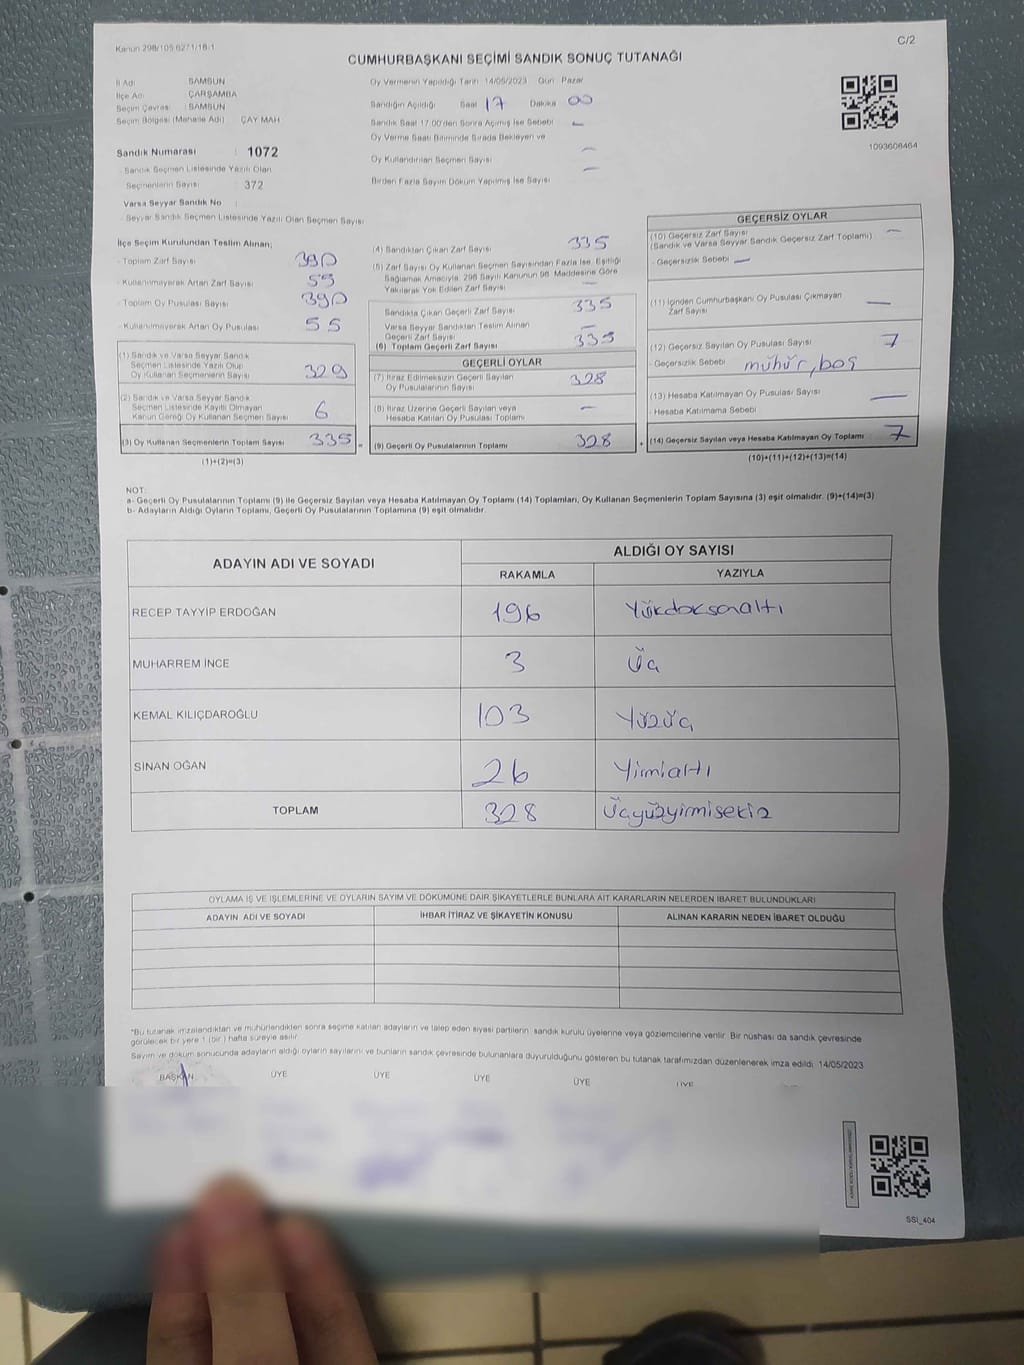 Kanun 298/105 6271/16-1
C/2
CUMHURBAŞKANI SEÇİMİ SANDIK SONUÇ TUTANAĞI
İl Adı : SAMSUN
İlçe Adı : ÇARŞAMBA
Seçim Çevresi : SAMSUN
Seçim Bölgesi (Mahalle Adı) : ÇAY MAH
Oy Vermenin Yapıldığı Tarih 14/05/2023 Gün Pazar
Sandığın Açıldığı Saat 17 Dakika 00
Sandık Saat 17:00'den Sonra Açılmış İse Sebebi —
Oy Verme Saati Bitiminde Sırada Bekleyen ve
Oy Kullandırılan Seçmen Sayısı —
Birden Fazla Sayım Döküm Yapılmış İse Sayısı —
1093608464
Sandık Numarası : 1072
- Sandık Seçmen Listesinde Yazılı Olan
Seçmenlerin Sayısı : 372
Varsa Seyyar Sandık No :
- Seyyar Sandık Seçmen Listesinde Yazılı Olan Seçmen Sayısı
İlçe Seçim Kurulundan Teslim Alınan;
- Toplam Zarf Sayısı : 390
- Kullanılmayarak Artan Zarf Sayısı : 55
- Toplam Oy Pusulası Sayısı : 390
- Kullanılmayarak Artan Oy Pusulası : 55
(1) Sandık ve Varsa Seyyar Sandık
Seçmen Listesinde Yazılı Olup
Oy Kullanan Seçmenlerin Sayısı : 329
(2) Sandık ve Varsa Seyyar Sandık
Seçmen Listesinde Kayıtlı Olmayan
Kanun Gereği Oy Kullanan Seçmen Sayısı : 6
(3) Oy Kullanan Seçmenlerin Toplam Sayısı : 335
(1)+(2)=(3)
(4) Sandıktan Çıkan Zarf Sayısı : 335
(5) Zarf Sayısı Oy Kullanan Seçmen Sayısından Fazla İse, Eşitliği
Sağlamak Amacıyla; 298 Sayılı Kanunun 98. Maddesine Göre
Yakılarak Yok Edilen Zarf Sayısı : —
Sandıkta Çıkan Geçerli Zarf Sayısı : 335
Varsa Seyyar Sandıktan Teslim Alınan
Geçerli Zarf Sayısı : —
(6) Toplam Geçerli Zarf Sayısı : 335
GEÇERLİ OYLAR
(7) İtiraz Edilmeksizin Geçerli Sayılan
Oy Pusulalarının Sayısı : 328
(8) İtiraz Üzerine Geçerli Sayılan veya
Hesaba Katılan Oy Pusulası Toplamı : —
(9) Geçerli Oy Pusulalarının Toplamı : 328
GEÇERSİZ OYLAR
(10) Geçersiz Zarf Sayısı : —
(Sandık ve Varsa Seyyar Sandık Geçersiz Zarf Toplamı)
- Geçersizlik Sebebi : —
(11) İçinden Cumhurbaşkanı Oy Pusulası Çıkmayan
Zarf Sayısı : —
(12) Geçersiz Sayılan Oy Pusulası Sayısı : 7
- Geçersizlik Sebebi : mühür, boş
(13) Hesaba Katılmayan Oy Pusulası Sayısı : —
- Hesaba Katılmama Sebebi :
(14) Geçersiz Sayılan veya Hesaba Katılmayan Oy Toplamı : 7
(10)+(11)+(12)+(13)=(14)
NOT:
a- Geçerli Oy Pusulalarının Toplamı (9) ile Geçersiz Sayılan veya Hesaba Katılmayan Oy Toplamı (14) Toplamları, Oy Kullanan Seçmenlerin Toplam Sayısına (3) eşit olmalıdır. (9)+(14)=(3)
b- Adayların Aldığı Oyların Toplamı, Geçerli Oy Pusulalarının Toplamına (9) eşit olmalıdır.
ADAYIN ADI VE SOYADI ALDIĞI OY SAYISI
RAKAMLA YAZIYLA
RECEP TAYYİP ERDOĞAN 196 Yüzdoksanaltı
MUHARREM İNCE 3 Üç
KEMAL KILIÇDAROĞLU 103 Yüzüç
SİNAN OĞAN 26 Yirmialtı
TOPLAM 328 Üçyüzyirmisekiz
OYLAMA İŞ VE İŞLEMLERİNE VE OYLARIN SAYIM VE DÖKÜMÜNE DAİR ŞİKAYETLERLE BUNLARA AİT KARARLARIN NELERDEN İBARET BULUNDUKLARI
ADAYIN ADI VE SOYADI İHBAR İTİRAZ VE ŞİKAYETİN KONUSU ALINAN KARARIN NEDEN İBARET OLDUĞU
*Bu tutanak imzalandıktan ve mühürlendikten sonra seçime katılan adayların ve talep eden siyasi partilerin sandık kurulu üyelerine veya gözlemcilerine verilir. Bir nüshası da sandık çevresinde
görülecek bir yere 1 (bir ) hafta süreyle asılır.
Sayım ve döküm sonucunda adayların aldığı oyların sayılarını ve bunların sandık çevresinde bulunanlara duyurulduğunu gösteren bu tutanak tarafımızdan düzenlenerek imza edildi. 14/05/2023
BAŞKAN ÜYE ÜYE ÜYE ÜYE ÜYE
SSI_404